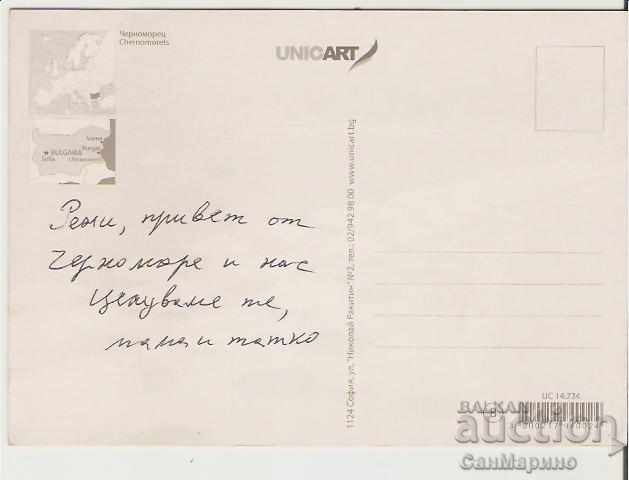 Черноморец
Chernomorets
UNICART
BULGARIA
Varna
Burgas
Sofia
Chernomorets
Рени, привет от
Черноморе и нас
Целуваме те,
мама и татко
1124 София, ул. "Николай Ракитин" №2, тел.: 02/942 98 00 www.unicart.bg
UC 14.234
B
BALKAN
auction
СанМарино